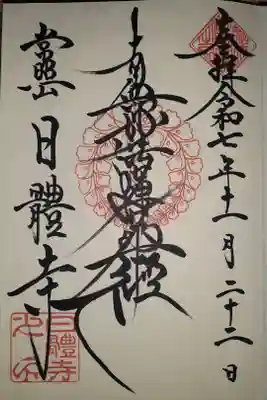 奉拝令和七年十一月二十二日
南無妙法蓮華經
靈山
日體寺
日體寺
之印